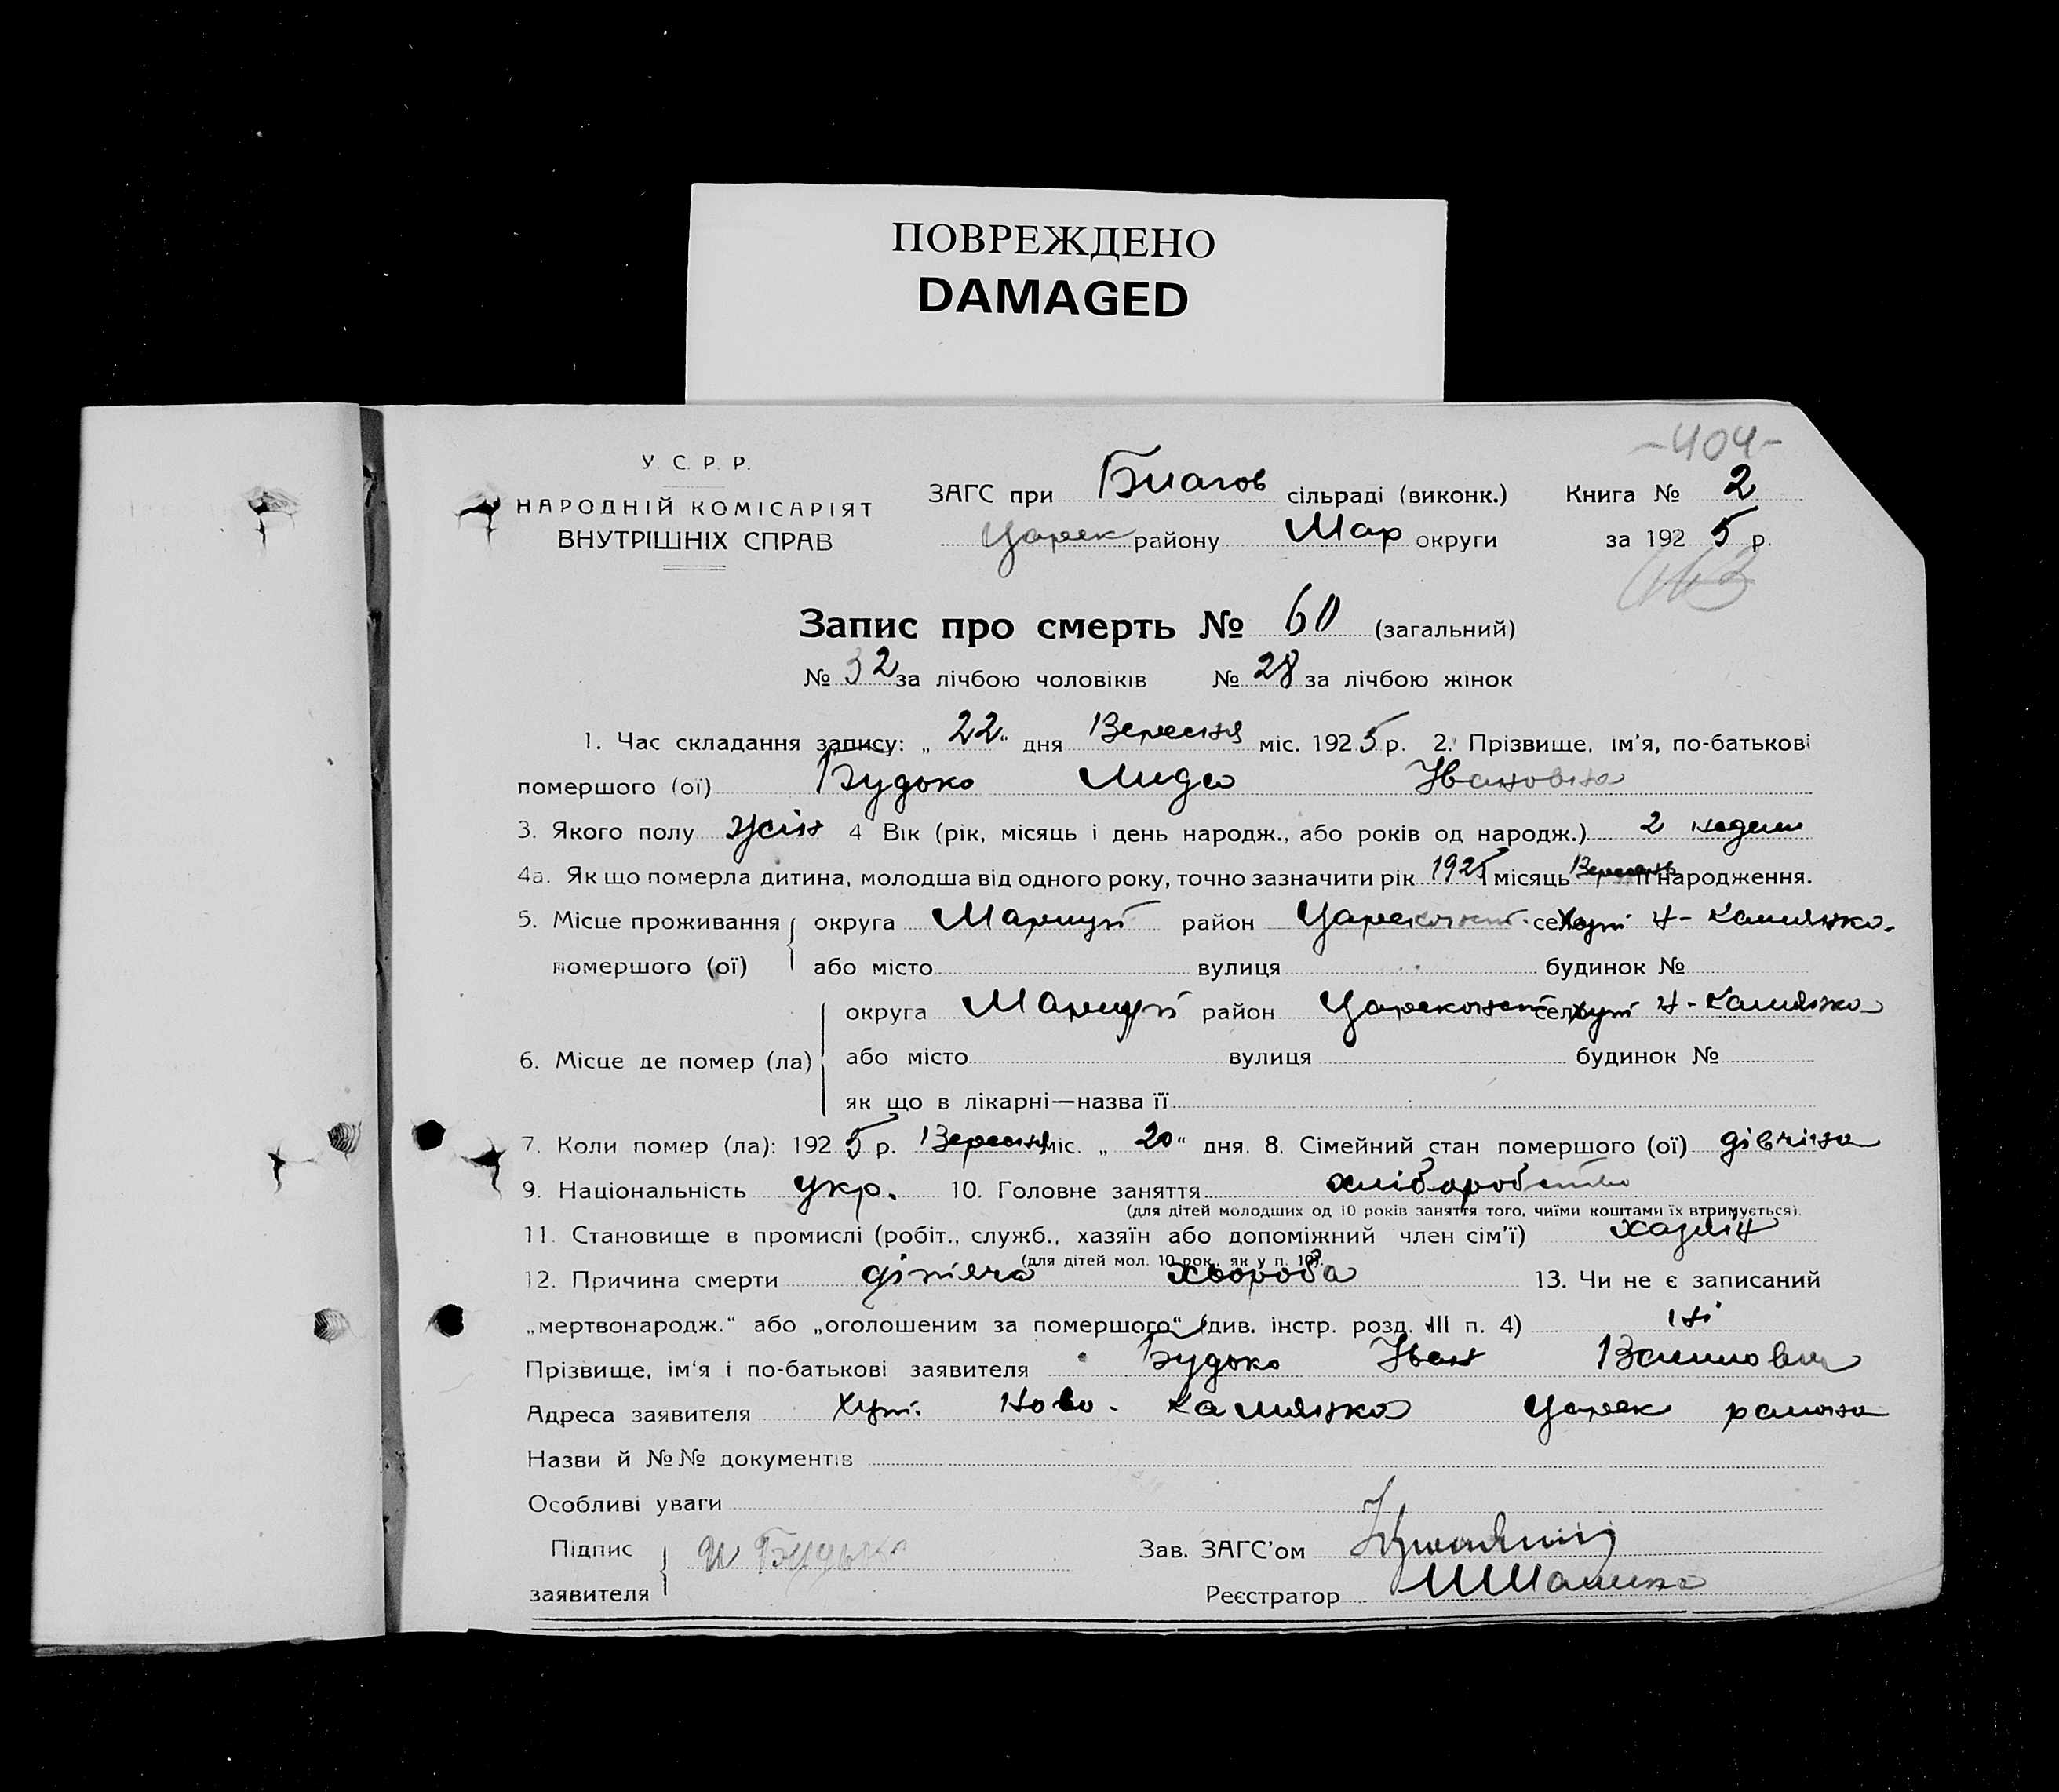 ПОВРЕЖДЕНО
DAMAGED
-404-
У. С. Р. Р.
НАРОДНІЙ КОМІСАРІЯТ
ВНУТРІШНІХ СПРАВ
ЗАГС при Благов сільраді (виконк.) Книга № 2
Царек району Мар округи за 1925 р.
Запис про смерть № 60 (загальний)
№ 32 за лічбою чоловіків № 28 за лічбою жінок
1. Час складання запису: „22“ дня Вересня міс. 1925 р. 2. Прізвище, ім'я, по-батькові
помершого (ої) Будько Лида Ивановна
3. Якого полу жін 4 Вік (рік, місяць і день народж., або років од народж.) 2 недели
4а. Як що померла дитина, молодша від одного року, точно зазначити рік 1925 місяць Вересень її народження.
5. Місце проживання округа Маріуп район село Хут Н-Камянка.
помершого (ої) або місто вулиця будинок №
округа Маріуп район село хут Н-Камянка
6. Місце де помер (ла) або місто вулиця будинок №
як що в лікарні—назва її
7. Коли помер (ла): 1925 р. Вересня міс. „20“ дня. 8. Сімейний стан помершого (ої) дівчина
9. Національність укр. 10. Головне заняття хліборобство
(для дітей молодших од 10 років заняття того, чиїми коштами їх втримується).
11. Становище в промислі (робіт., служб., хазяїн або допоміжний член сім'ї) хазяїн
(для дітей мол. 10 рок., як у п. 10).
12. Причина смерти дітяча хвороба 13. Чи не є записаний
„мертвонародж.“ або „оголошеним за помершого“ (див. інстр. розд. III п. 4) ні
Прізвище, ім'я і по-батькові заявителя Будько Іван
Адреса заявителя Хут. Ново-Камянка Царек района
Назви й №№ документів
Особливі уваги
Підпис заявителя И Будько Зав. ЗАГС'ом
Реєстратор